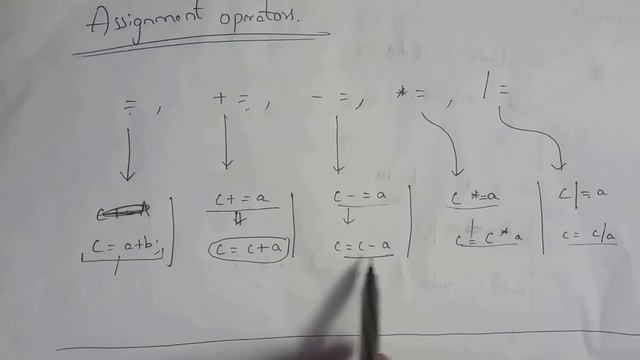 Assignment operators.
=, +=, -=, *=, /=
c+=a c-=a c*=a c/=a
c=a+b; c=c+a c=c-a c=c*a c=c/a